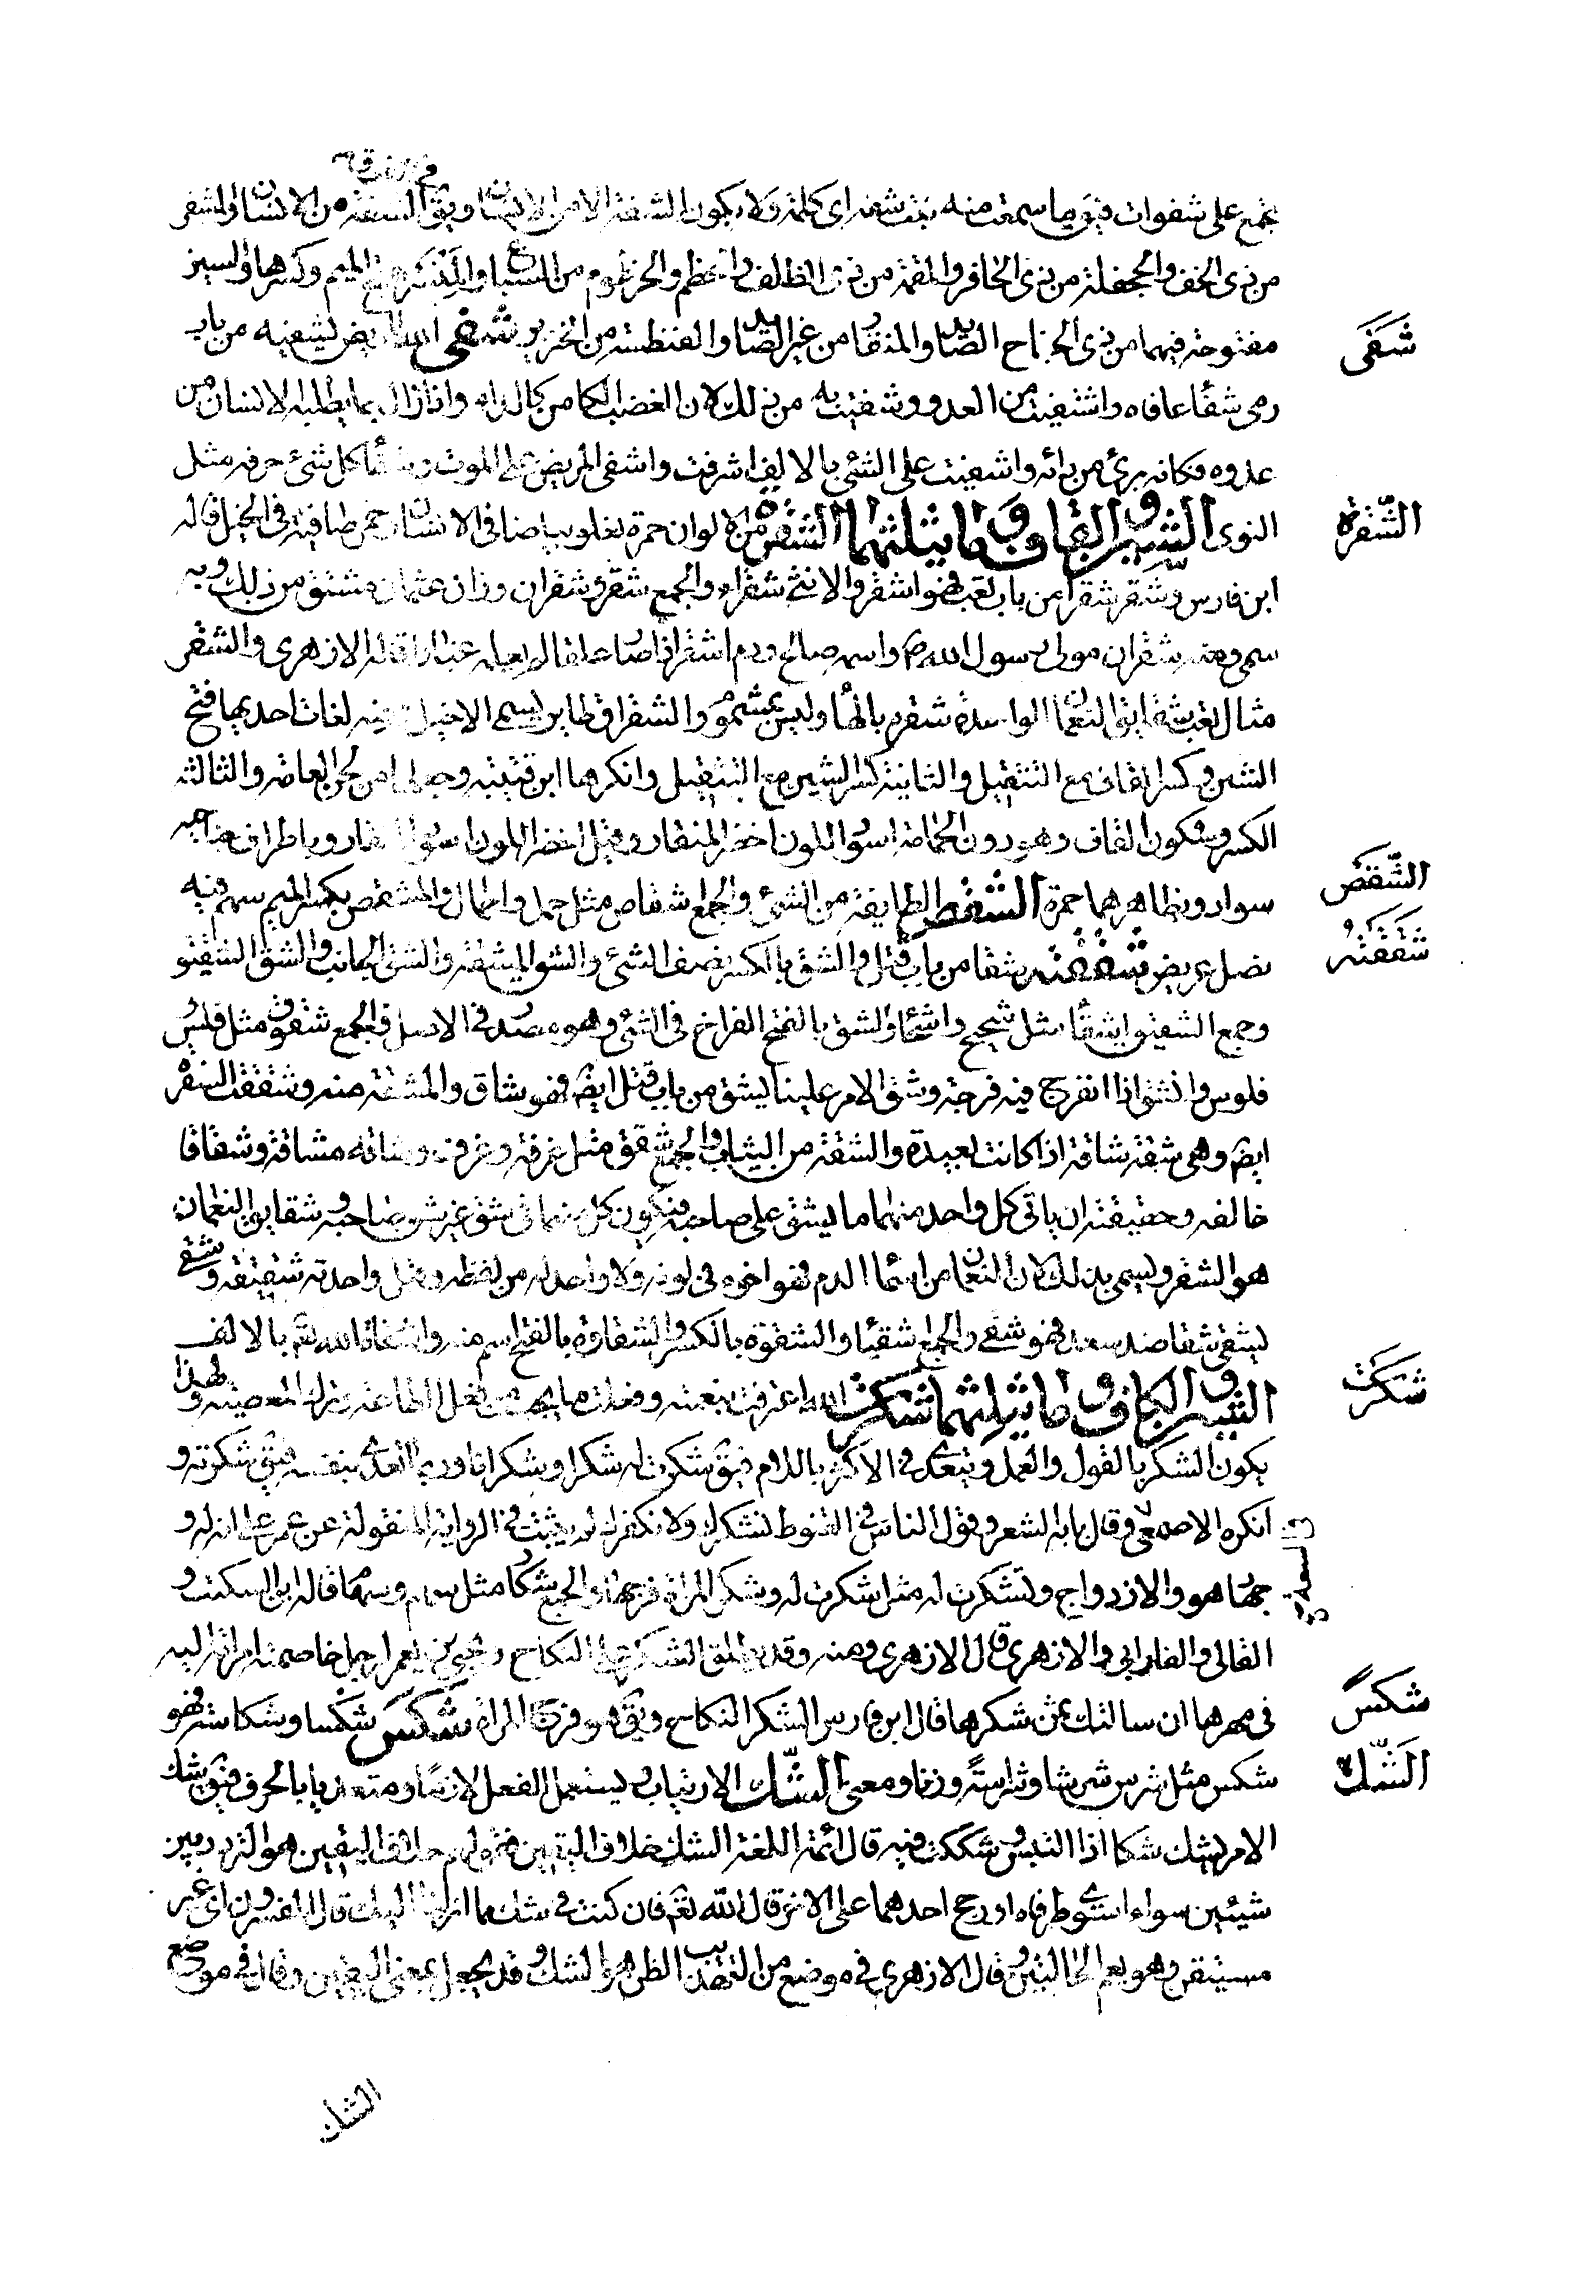 تجمع على شفوات فيق ما سمعت منه بنت شفة اى كلمة ولا يكون الشفة الا من الانسان ويق الشفة من الانسان والمشفر
من ذى الخف والجحفلة من ذى الحافر والمقمة من ذى الظلف والخطم والخرطوم من السباع والمنسر بفتح الميم وكسرها والسين
شفى
مفتوحة فيهما من ذى الجناح الصائد والمنقار من غير الصائد والفنطيسة من الخنزير شفى الله المريض يشفيه من باب
رمى شفاء عافاه واشتفيت من العدو وتشفيت به من ذلك لان الغضب الكامن كالداء واذا زال بما يطلبه الانسان من
عدوه فكانه برئ من دائه واشفيت على الشئ بالالف اشرفت واشفى المريض على الموت وشفا كل شئ حرفه مثل
الشقرة
النوى الشين والقاف وما يثلثهما الشقرة من الالوان حمرة تعلو بياضا فى الانسان وحمرة صافية فى الخيل قاله
ابن فارس وشقر شقرا من باب تعب فهو اشقر والانثى شقراء والجمع شقر وشقران وزان عثمان مشتق من ذلك وبه
سمى ومنه شقران مولى رسول الله ص واسمه صالح ودم اشقر اذا صار علقا لم يعله غبار قاله الازهرى والشقر
مثال تعب شقايق النعمان الواحدة شقرة بالهاء وليس بمشموم والشقراق طاير يسمى الاخيل وفيه لغات احديها فتح
الشين وكسر القاف مع التثقيل والثانية كسر الشين مع التثقيل وانكرها ابن قتيبة وجعلها من لحن العامة والثالثة
الكسر وسكون القاف وهو دون الحمامة اسود اللون اخضر المنقار وقيل اخضر اللون اسود المنقار وباطراف جناحيه
الشقص
سواد وبظاهرهما حمرة الشقص الطايفة من الشئ والجمع اشقاص مثل حمل واحمال والمشقص بكسر الميم سهم فيه
شققته
نصل عريض شققته شقا من باب قتل والشق بالكسر نصف الشئ والشق المشقة والشق الجانب والشق الشقيق
وجمع الشقيق اشقاء مثل شحيح واشحاء والشق بالفتح انفراج فى الشئ وهو مصدر فى الاصل والجمع شقوق مثل فلس
فلوس وانشق اذا انفرج فيه فرجة وشق الامر علينا يشق من باب قتل ايض فهو شاق والمشقة منه وشقت السفرة
ايض وهى شقة شاقة اذا كانت بعيدة والشقة من الثياب والجمع شقق مثل غرفة وغرف وشاقه مشاقة وشقاقا
خالفه وحقيقته ان ياتى كل واحد منهما ما يشق على صاحبه فيكون كل منهما فى شق غير شق صاحبه وشقايق النعمان
هو الشقر وسمى بذلك لان النعمان من اسماء الدم فهو اخوه فى لونه ولا واحد له من لفظه وقيل واحدته شقيقة وشقى
يشقى شقا ضد سعد فهو شقى والجمع اشقياء والشقوة بالكسر والشقاوة بالفتح اسم منه واشقاه الله تع بالالف
شكرت
الشين والكاف وما يثلثهما شكرت الله اعترفت بنعمته وفعلت ما يجب من فعل الطاعة وترك المعصية ولهذا
يكون الشكر بالقول والعمل ويتعدى فى الاكثر باللام فيق شكرت له شكرا وشكرانا وربما تعدى بنفسه فيق شكرته و
انكره الاصمعى وقال بابه الشعر وقول الناس فى القنوط نشكرك ولا نكفرك لم يثبت فى الرواية المنقولة عن عمر على ان له و
جها هو والازدواج وتشكرت له مثل شكرت له وشكر المراة فرجها والجمع شكار مثل سهم وسهام قاله ابن السكيت و
الفارابى والازهرى قال الازهرى ومنه وقد يطلق الشكر على النكاح يحيى بن يعمر لرجل خاصمته امراته اليه
شكس
فى مهرها ان سالتك ثمن شكرها قال ابن فارس الشكر النكاح ويق هو فرج المراة شكس شكسا وشكاسة فهو
الشك
شكس مثل شرس شرسا وشراسة وزنا ومعنى الشك الارتياب يستعمل الفعل لازما ومتعديا بالحرف فيق شك
الامر يشك شكا اذا التبس وشككت فيه قال ائمة اللغة الشك خلاف اليقين فقولهم خلاف اليقين هو التردد بين
شيئين سواء استوى طرفاه او رجح احدهما على الاخر قال الله تعم فان كنت فى شك مما انزلنا اليك قال المفسرون اى غير
مستيقن وهو يعم الحالتين وقال الازهرى فى موضع من التهذيب الظن هو الشك وقد يجعل بمعنى اليقين وقال فى موضع
الشك